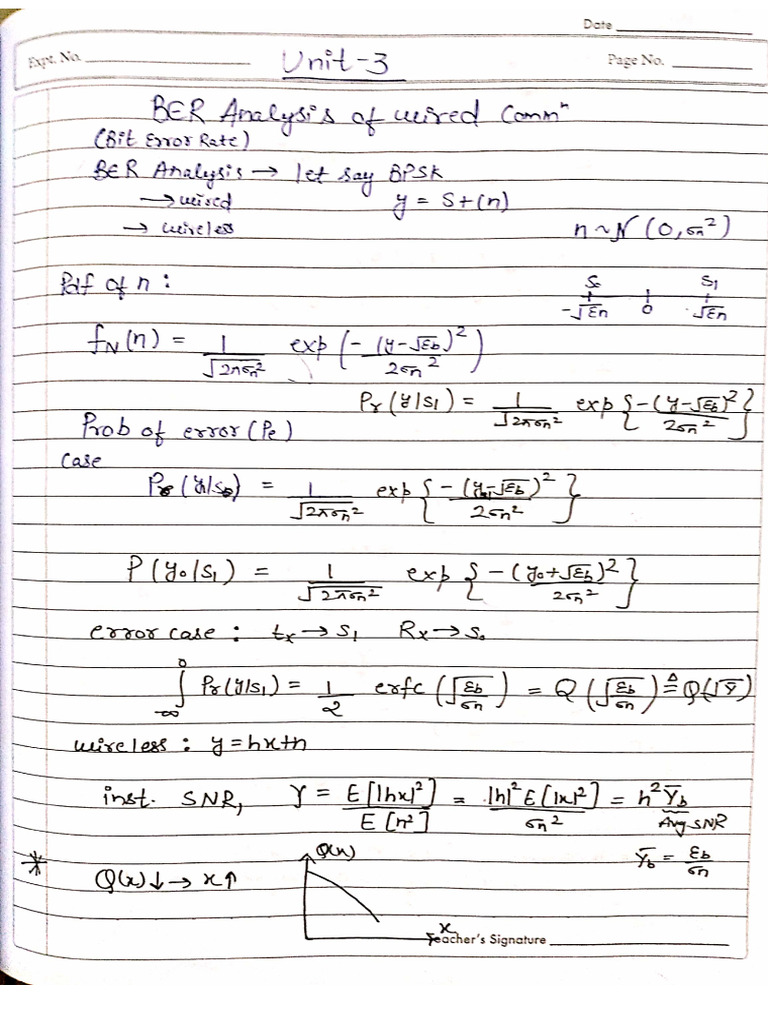 Date
Expt. No.
Unit-3
Page No.
BER Analysis of wired Commⁿ
(Bit Error Rate)
BER Analysis → let say BPSK
→ wired y = S+(n)
→ wireless n ~ N (0, σn²)
Pdf of n : S₀ S₁
-√Ɛn 0 √Ɛn
fN(n) = 1/√2πσn² exp (-(y-√Ɛb)²/2σn²)
Pr(y/s₁) = 1/√2πσn² exp {-(y-√Ɛb)²/2σn²}
Prob of error (Pe)
Case
Pr(y/s₀) = 1/√2πσn² exp {-(y-√Ɛb)²/2σn²}
P(y₀/s₁) = 1/√2πσn² exp {-(y₀+√Ɛb)²/2σn²}
error case : tx → S₁ Rx → S₀
∫₋∞⁰ Pr(y/s₁) = 1/2 erfc (√Ɛb/σn) = Q (√Ɛb/σn) ≜ Q(√γ̄)
wireless : y = hx+n
inst. SNR, γ = E[|hx|²]/E[n²] = |h|² E[|x|²]/σn² = h² γ̄b
Avg SNR
* Q(x)↓ → x↑ Q(x) γ̄b = Ɛb/σn
x
Teacher's Signature